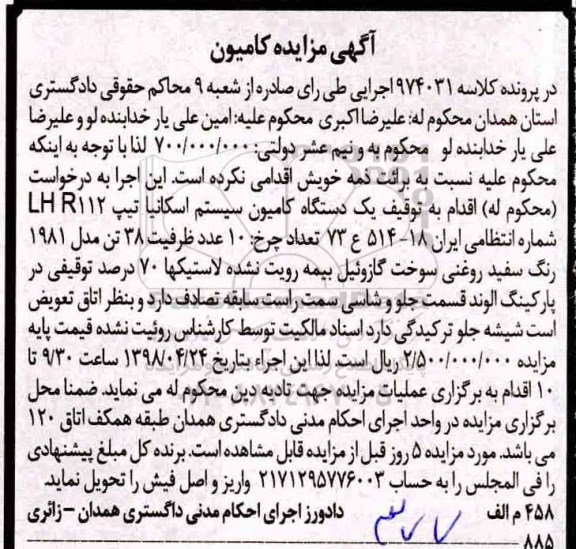 آگهی مزایده کامیون
در پرونده کلاسه ۹۷۴۰۳۱ اجرایی طی رای صادره از شعبه ۹ محاکم حقوقی دادگستری
استان همدان محکوم له: علیرضا اکبری محکوم علیه: امین علی یار خدابنده لو و علیرضا
علی یار خدابنده لو محکوم به و نیم عشر دولتی: ۷۰۰/۰۰۰/۰۰۰ لذا با توجه به اینکه
محکوم علیه نسبت به برائت ذمه خویش اقدامی نکرده است. این اجرا به درخواست
(محکوم له) اقدام به توقیف یک دستگاه کامیون سیستم اسکانیا تیپ LHR۱۱۲
شماره انتظامی ایران ۱۸-۵۱۴ ع ۷۳ تعداد چرخ: ۱۰ عدد ظرفیت ۳۸ تن مدل ۱۹۸۱
رنگ سفید روغنی سوخت گازوئیل بیمه رویت نشده لاستیکها ۷۰ درصد توقیفی در
پارکینگ الوند قسمت جلو و شاسی سمت راست سابقه تصادف دارد و بنظر اتاق تعویض
است شیشه جلو ترکیدگی دارد اسناد مالکیت توسط کارشناس روئیت نشده قیمت پایه
مزایده ۲/۵۰۰/۰۰۰/۰۰۰ ریال است. لذا این اجراء بتاریخ ۱۳۹۸/۰۴/۲۴ ساعت ۹/۳۰ تا
۱۰ اقدام به برگزاری عملیات مزایده جهت تادیه دین محکوم له می نماید. ضمنا محل
برگزاری مزایده در واحد اجرای احکام مدنی دادگستری همدان طبقه همکف اتاق ۱۲۰
می باشد. مورد مزایده ۵ روز قبل از مزایده قابل مشاهده است. برنده کل مبلغ پیشنهادی
را فی المجلس را به حساب ۲۱۷۱۲۹۵۷۷۶۰۰۳ واریز و اصل فیش را تحویل نماید.
۴۵۸ م الف دادورز اجرای احکام مدنی داگستری همدان - زائری
۸۸۵